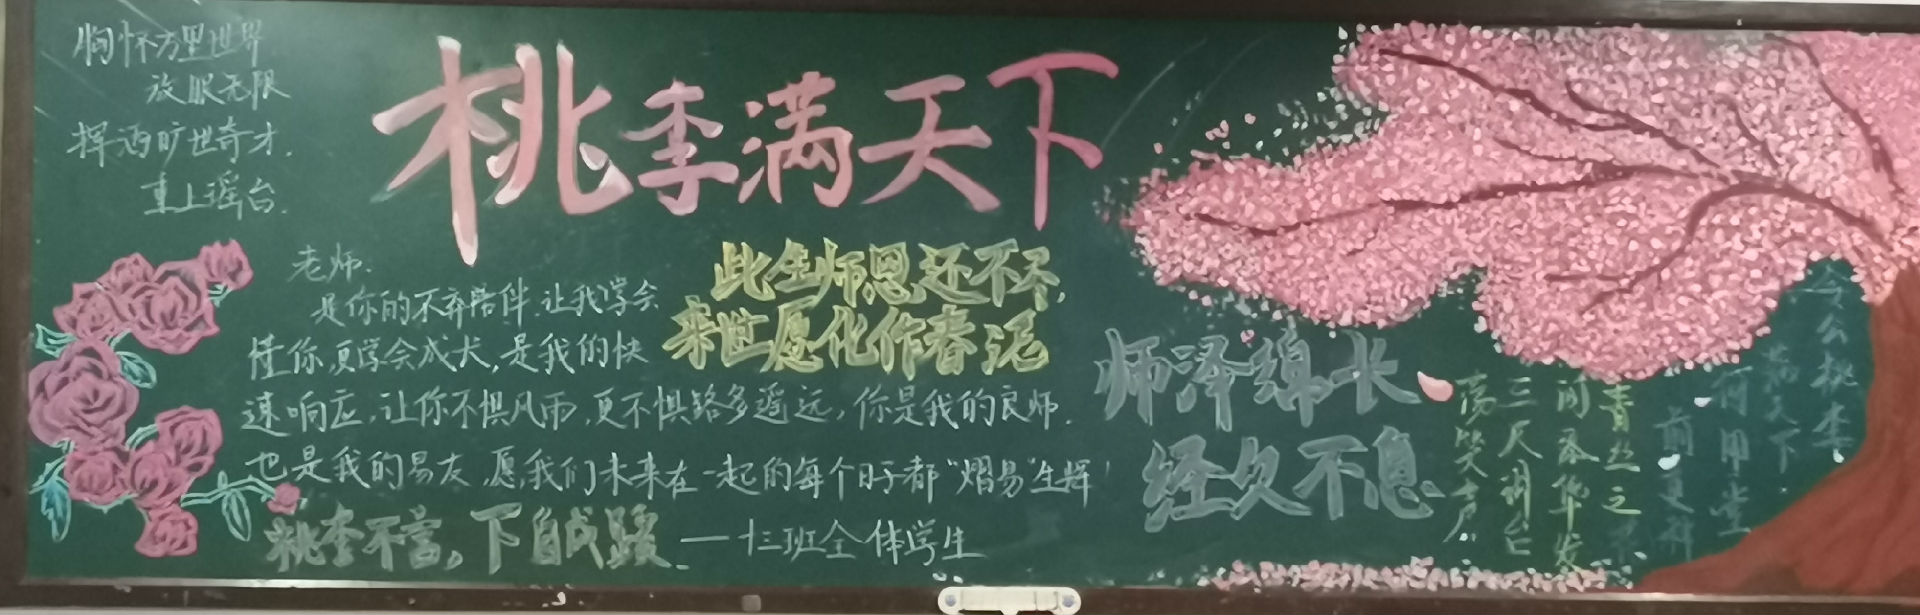 胸怀万里世界
放眼无限
挥洒旷世奇才.
直上瑶台.
桃李满天下
老师.
是你的不弃陪伴.让我学会
懂你,更学会成长,是我的快
速响应,让你不惧风雨,更不惧路多遥远,你是我的良师.
也是我的易友,愿我们未来在一起的每个日子都“熠易”生辉!
桃李不言。下自成蹊.
——十三班全体学生
此生师恩还不尽,
来世愿化作春泥
师泽绵长
经久不息
令公桃李
满天下
何用堂
前更种
青丝之
间添华发
三尺讲台
荡笑声.